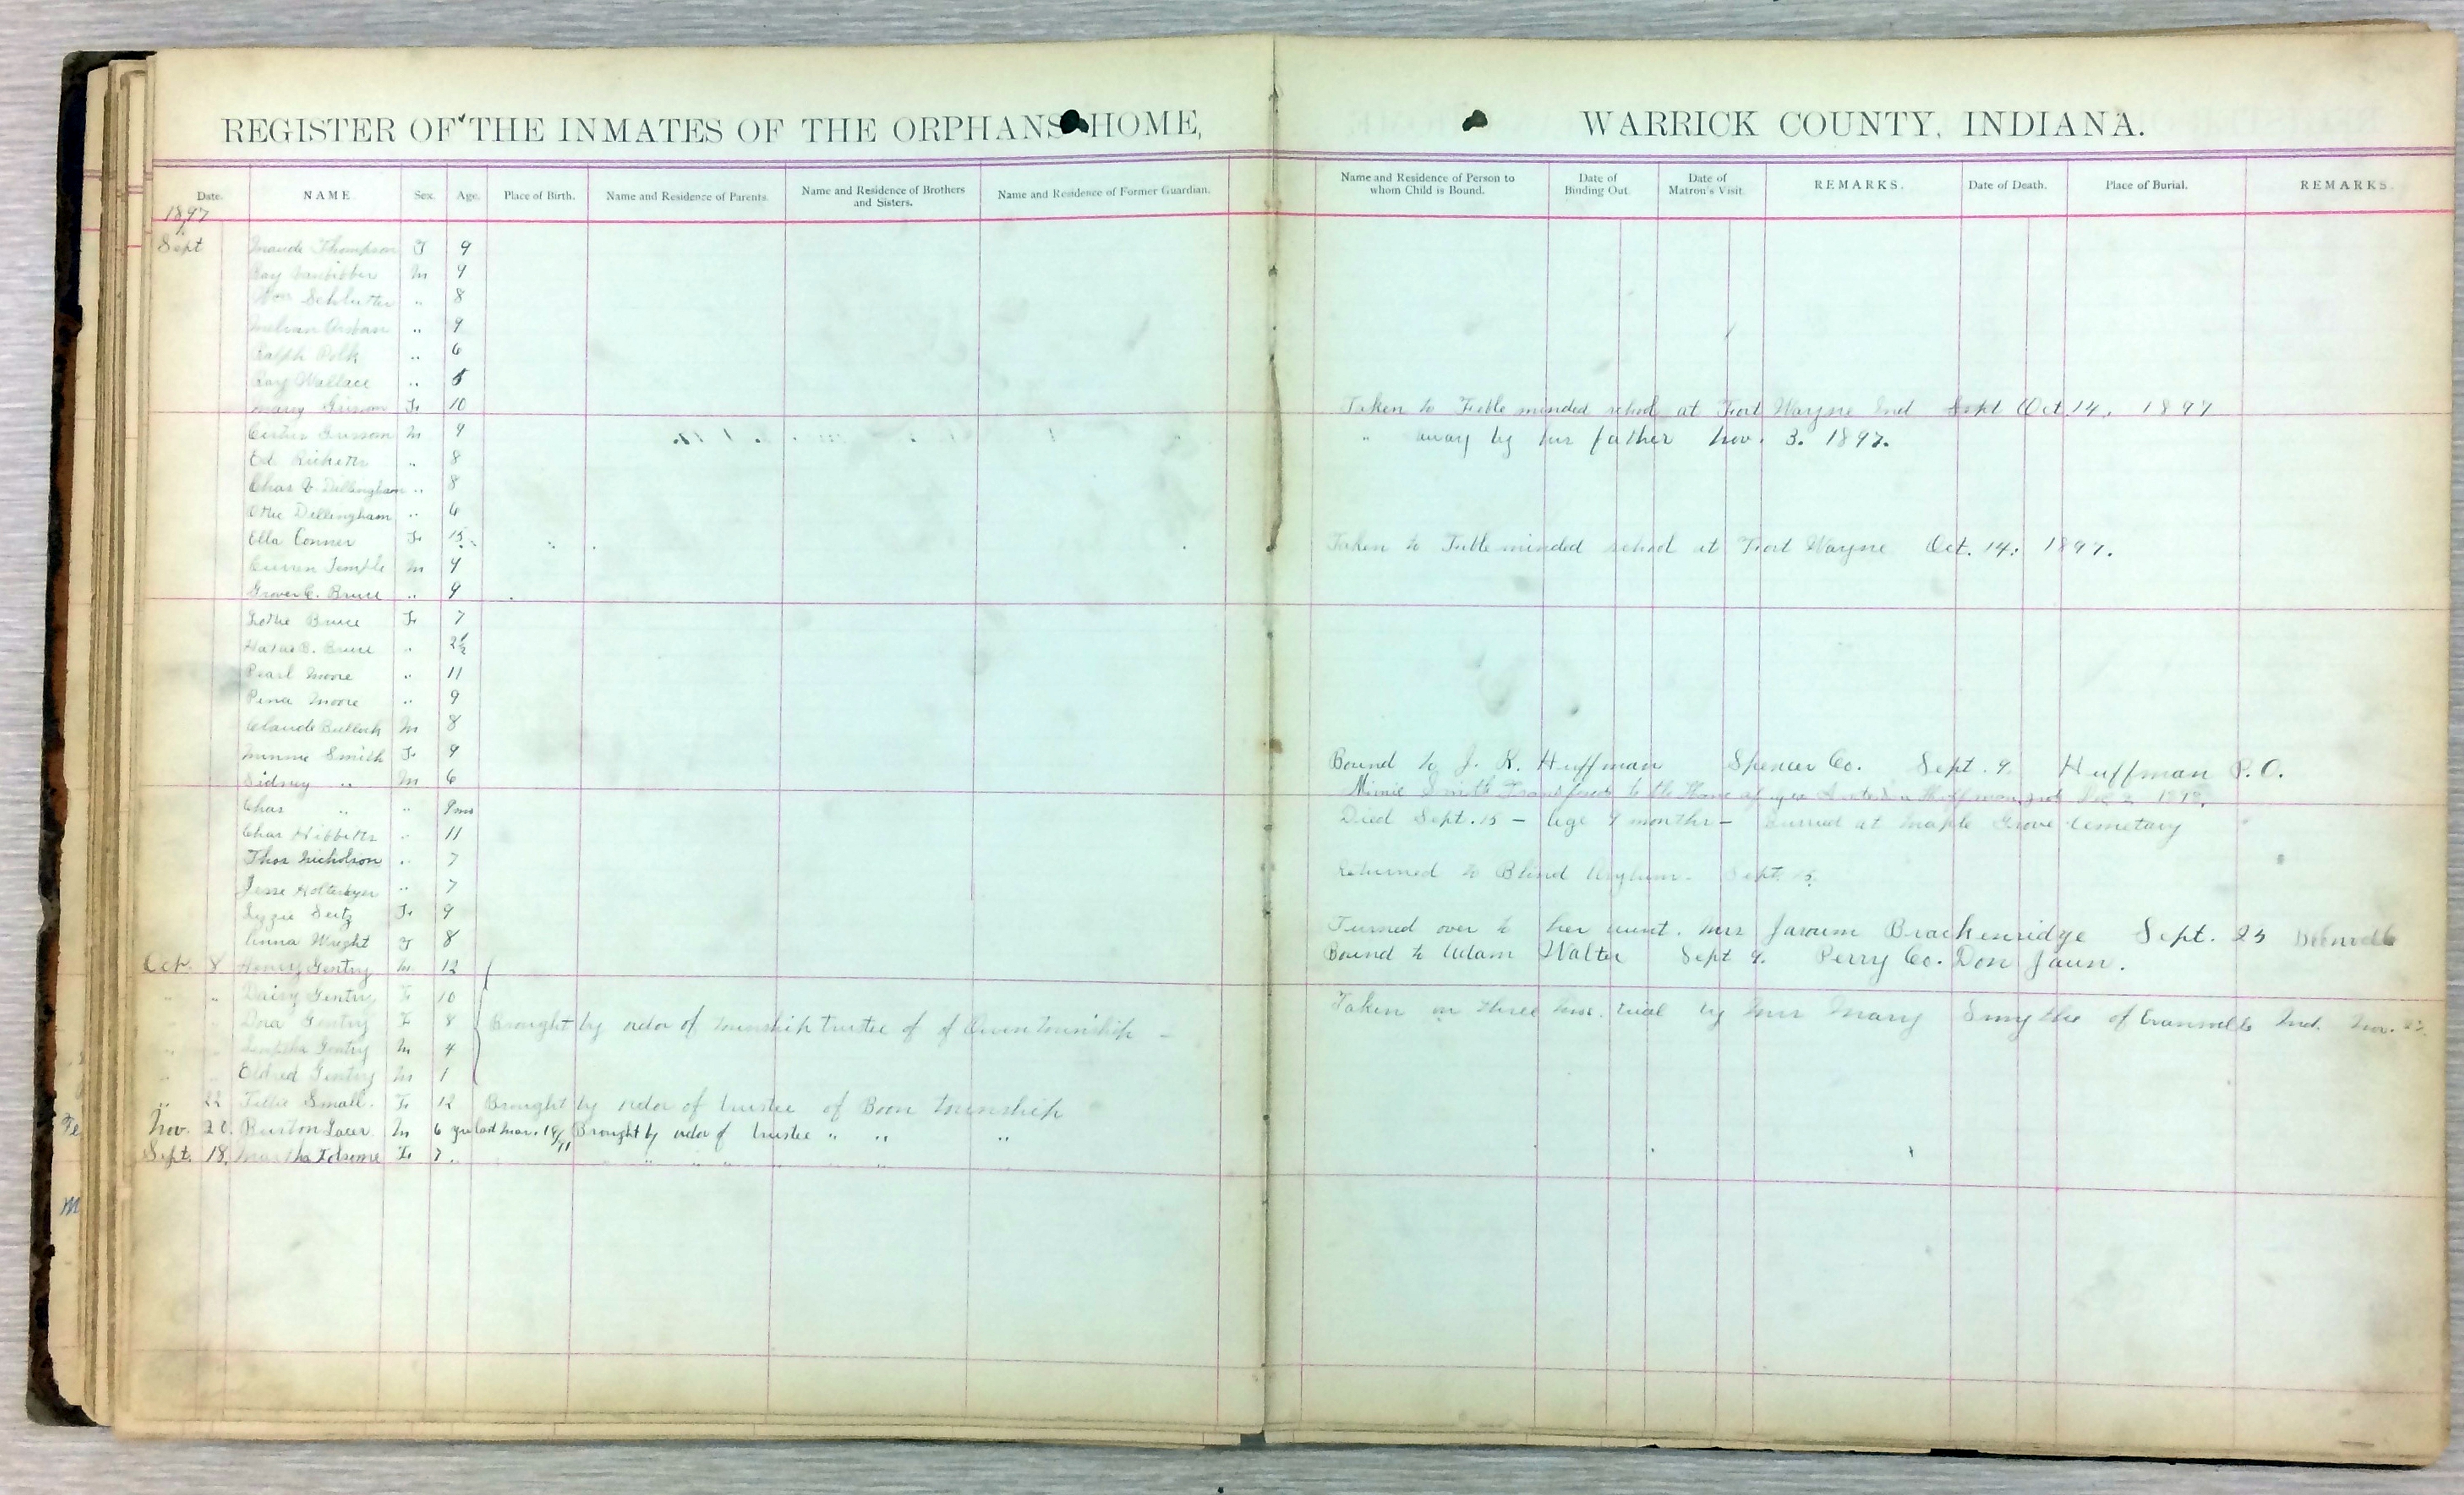 REGISTER OF THE INMATES OF THE ORPHANS HOME, WARRICK COUNTY, INDIANA.
Date. NAME. Sex. Age. Place of Birth. Name and Residence of Parents. Name and Residence of Brothers and Sisters. Name and Residence of Former Guardian. Name and Residence of Person to whom Child is Bound. Date of Binding Out. Date of Matron's Visit. REMARKS. Date of Death. Place of Burial. REMARKS.
1897
Sept Maude Thompson F 9
Ray M 9
Schlutter " 8
" 9
Ralph Polk " 6
Ray Wallace " 5
Mary Grissom F 10 Taken to Feeble minded school at Fort Wayne Ind Sept Oct. 14, 1897
Grissom M 9 " away by his father Nov. 3. 1897.
Ed Ricketts " 8
Chas Dillingham " 8
Otie Dillingham " 6
Ella Conner F 15 Taken to Feeble minded school at Fort Wayne Oct. 14, 1897.
Curren Temple M 9
Grover C. Bruce " 9
Lottie Bruce F 7
B. Bruce " 2½
Pearl Moore " 11
Pina Moore " 9
Claude Bullock M 8
Minnie Smith F 9 Bound to J. K. Huffman Spencer Co. Sept. 9. Huffman P.O.
Sidney " M 6 Minie Smith Transfered to the Home of Huffman 1898.
Chas " " 9 mos Died Sept. 15 - Age 9 months - Burried at Maple Grove Cemetary
Chas Hibbitts " 11
Thos Nicholson " 7 Returned to Blind Asylum. Sept. 15.
Jesse " 7
Lizzie Seitz F 9 Turned over to her aunt. Mrs Brackenridge Sept. 23 Boonville
Anna Wright F 8 Bound to Adam Walter Sept 9. Perry Co. Don Jaun.
Oct. 8 Henry Gentry M 12
" " Daisy Gentry F 10 Taken on three mos. trial by Mrs Mary Smythe of Evansville Ind. Nov.
" Dora Gentry F 8 Brought by order of township trustee of of Owen township -
" " Gentry M 4
" " Eldred Gentry M 1
" 22 Tillie Small. F 12 Brought by order of trustee of Boon township
Nov. 20. Burton Lacer M 6 yrs last Mar. 19/91 Brought by order of trustee " " "
Sept. 18. Martha Folsome F 7. " " " " " "